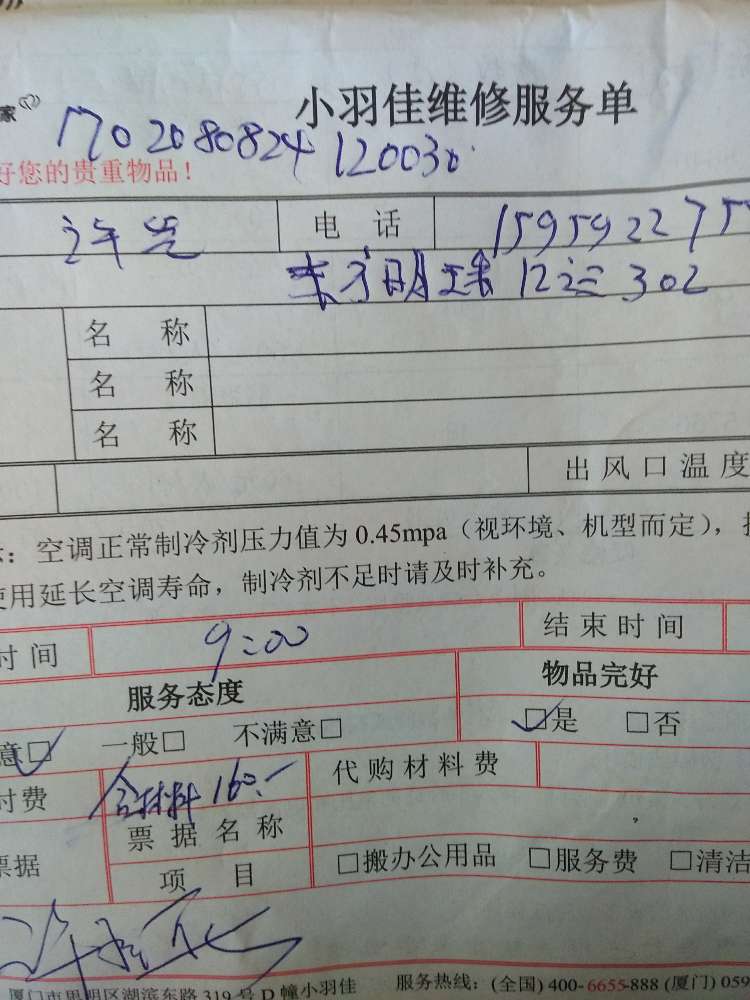 家
小羽佳维修服务单
170208082412003
好您的贵重物品！
许 电 话 159592275
东方明珠 12 302
名 称
名 称
名 称
出风口温度
：空调正常制冷剂压力值为 0.45mpa（视环境、机型而定），
使用延长空调寿命，制冷剂不足时请及时补充。
时间 9:00 结束时间
服务态度 物品完好
意□ 一般□ 不满意□ □是 □否
付费 含材料 160.- 代购材料费
票据名称
票据 项 目 □搬办公用品 □服务费 □清洁
许
厦门市思明区湖滨东路 319 号 D 幢小羽佳 服务热线：(全国) 400-6655-888 (厦门) 059